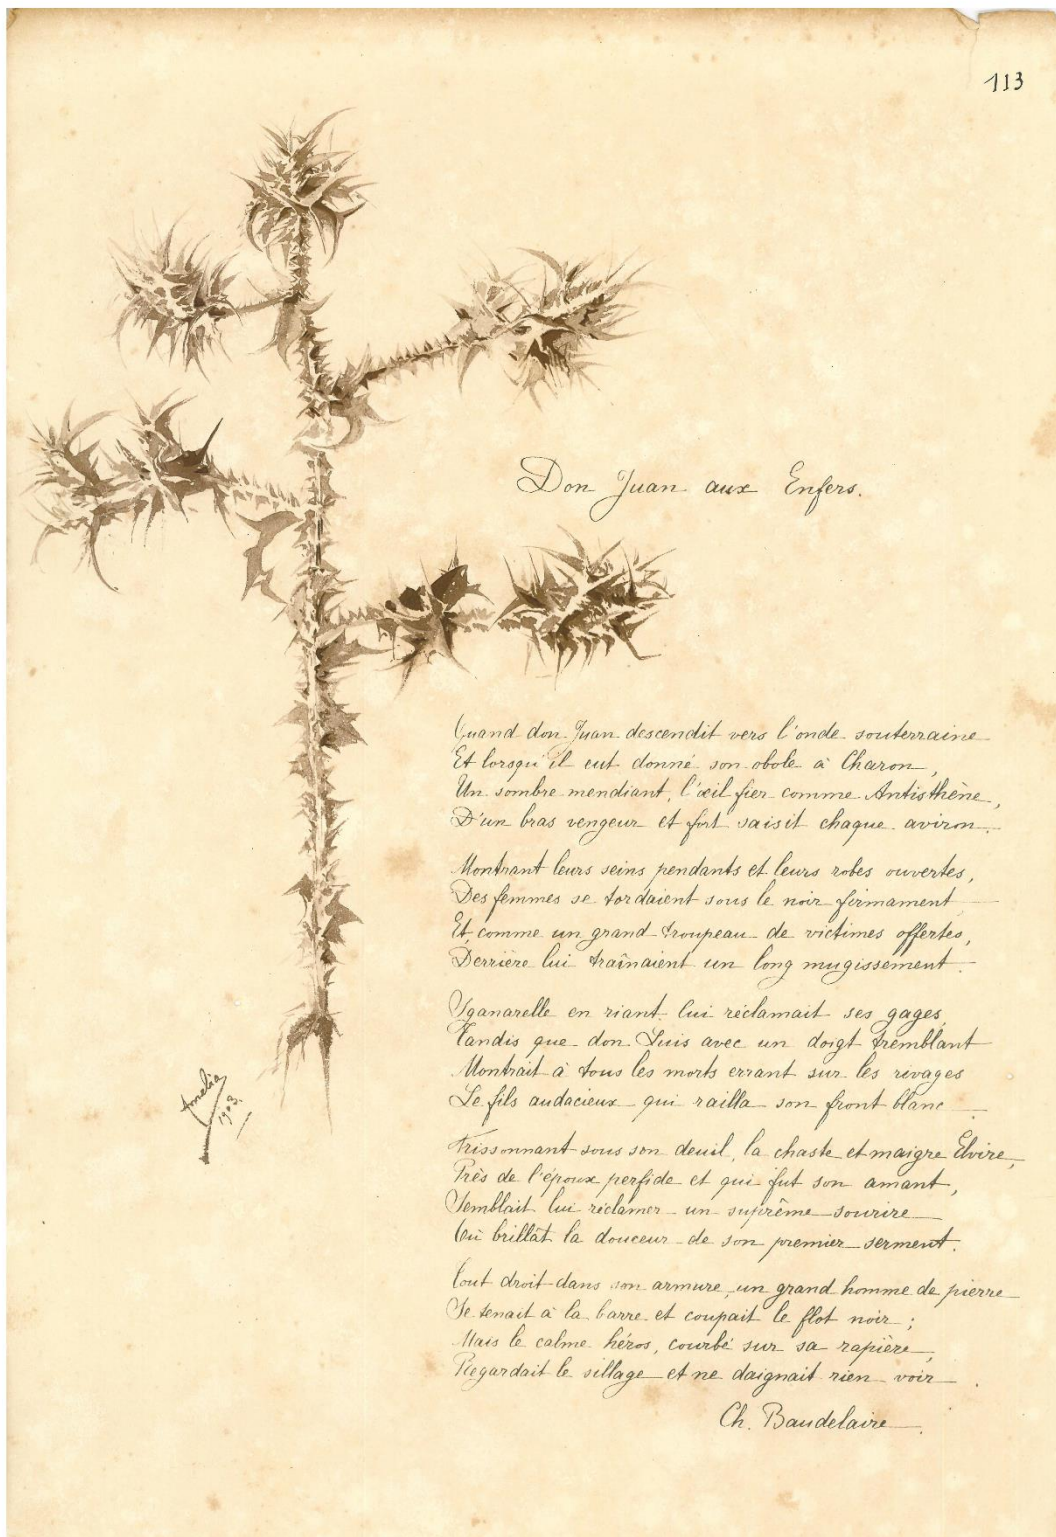 113
Don Juan aux Enfers.
Quand don Juan descendit vers l'onde souterraine
Et lorsqu'il eut donné son obole à Charon,
Un sombre mendiant, l'œil fier comme Antisthène,
D'un bras vengeur et fort saisit chaque aviron.
Montrant leurs seins pendants et leurs robes ouvertes,
Des femmes se tordaient sous le noir firmament
Et, comme un grand troupeau de victimes offertes,
Derrière lui traînaient un long mugissement.
Sganarelle en riant lui réclamait ses gages,
Tandis que don Luis avec un doigt tremblant
Montrait à tous les morts errant sur les rivages
Le fils audacieux qui railla son front blanc
Frissonnant sous son deuil, la chaste et maigre Elvire,
Près de l'époux perfide et qui fut son amant,
Semblait lui réclamer un suprême sourire
Où brillât la douceur de son premier serment.
Tout droit dans son armure, un grand homme de pierre
Se tenait à la barre et coupait le flot noir ;
Mais le calme héros, courbé sur sa rapière,
Regardait le sillage et ne daignait rien voir.
Ch. Baudelaire.
Amelia
1903.